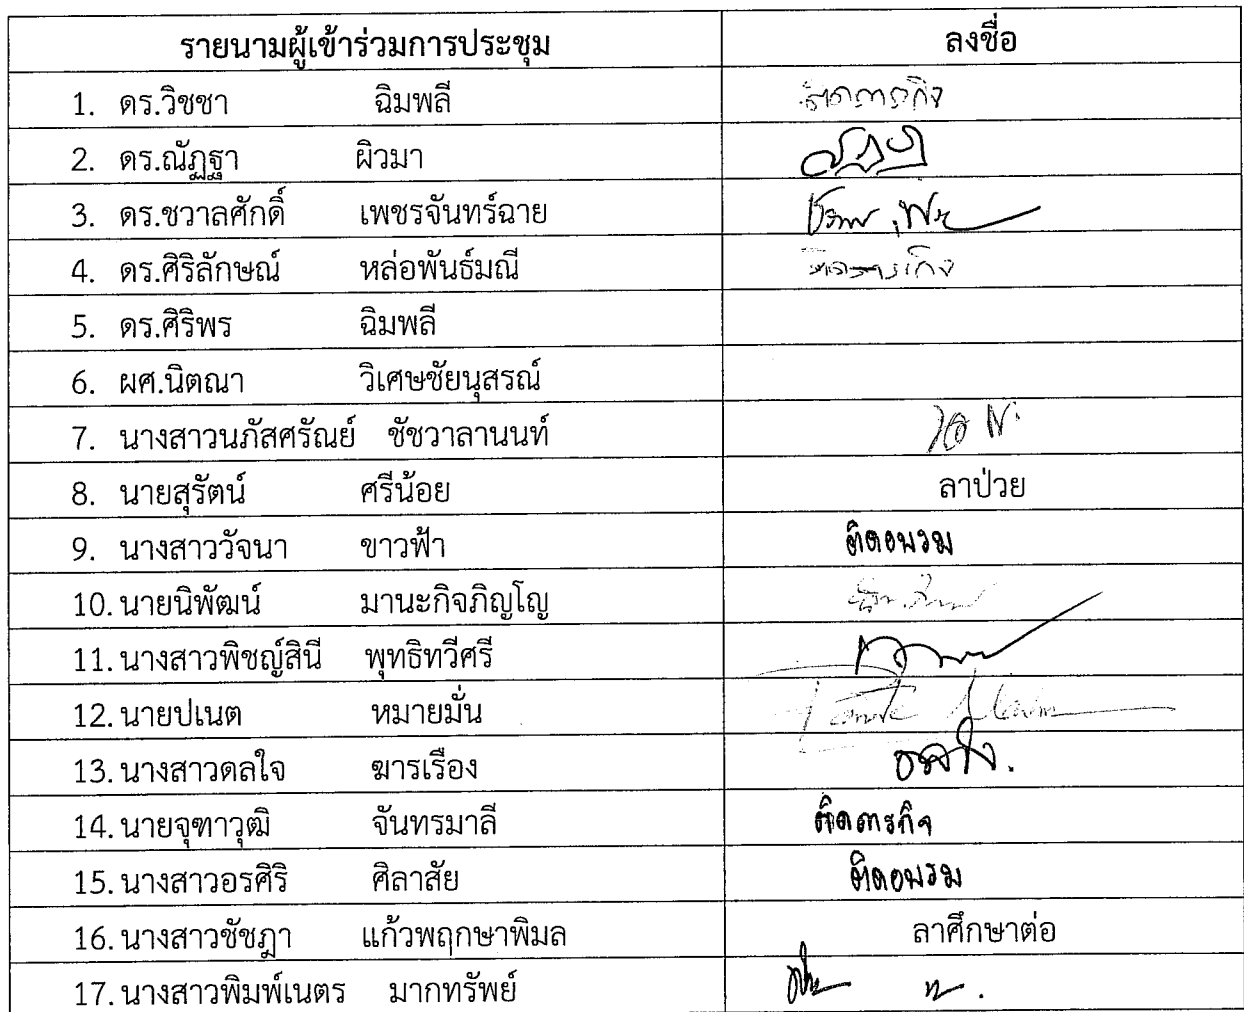 รายนามผู้เข้าร่วมการประชุม ลงชื่อ
1. ดร.วิชชา ฉิมพลี ติดภารกิจ
2. ดร.ณัฏฐา ผิวมา
3. ดร.ชวาลศักดิ์ เพชรจันทร์ฉาย
4. ดร.ศิริลักษณ์ หล่อพันธ์มณี ติดภารกิจ
5. ดร.ศิริพร ฉิมพลี
6. ผศ.นิตณา วิเศษชัยนุสรณ์
7. นางสาวนภัสศรัณย์ ชัชวาลานนท์
8. นายสุรัตน์ ศรีน้อย ลาป่วย
9. นางสาววัจนา ขาวฟ้า ติดอบรม
10. นายนิพัฒน์ มานะกิจภิญโญ
11. นางสาวพิชญ์สินี พุทธิทวีศรี
12. นายปเนต หมายมั่น
13. นางสาวดลใจ ฆารเรือง
14. นายจุฑาวุฒิ จันทรมาลี ติดภารกิจ
15. นางสาวอรศิริ ศิลาสัย ติดอบรม
16. นางสาวชัชฎา แก้วพฤกษาพิมล ลาศึกษาต่อ
17. นางสาวพิมพ์เนตร มากทรัพย์